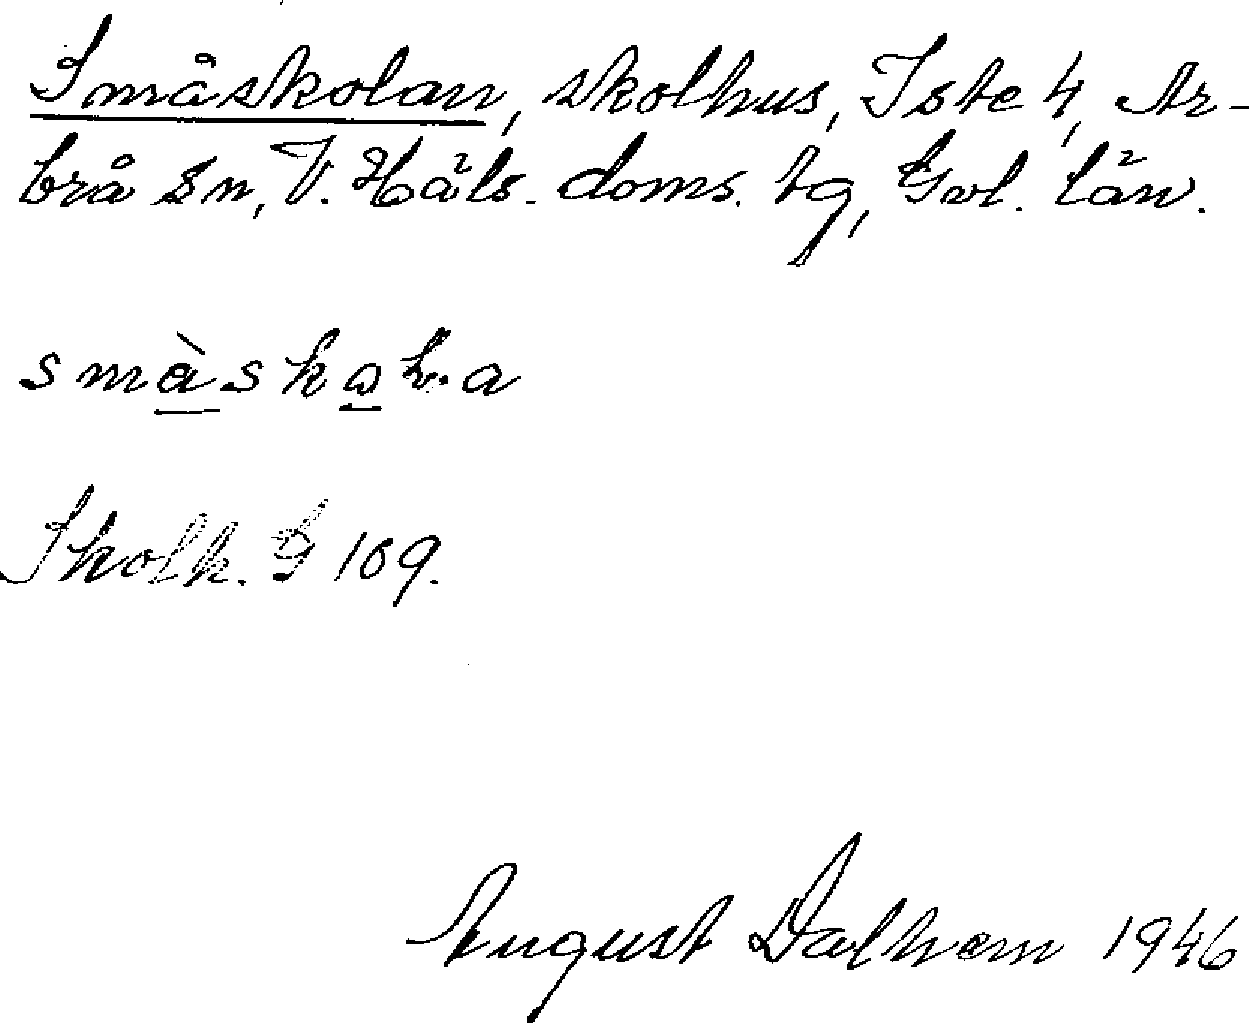 Småskolan, skolhus, Iste 4, Ar-
brå sn, V. Häls. doms. tg, Gvl. län.
småskola
Skolk. G 109.
August Dalhem 1946